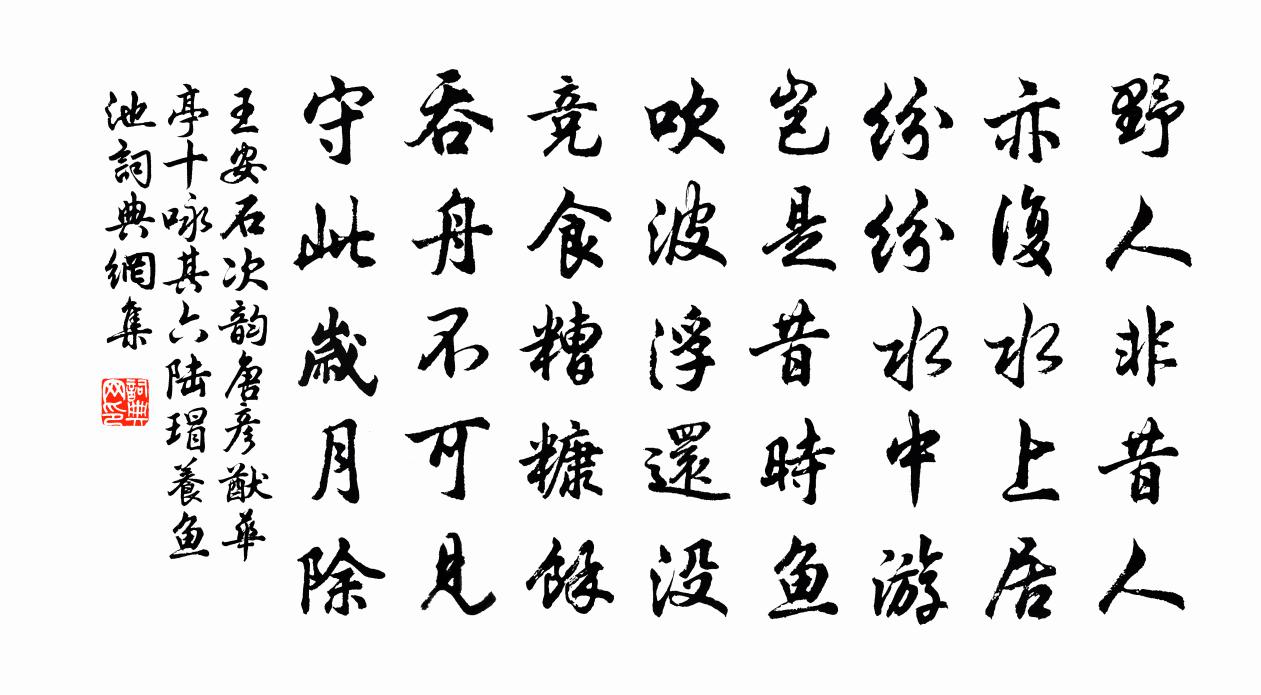 野人非昔人
亦復水上居
紛紛水中游
岂是昔時鱼
吹波浮還没
竞食糟糠餘
吞舟不可見
守此歲月除
王安石次韵唐彦猷華
亭十咏其六陆瑁養鱼
池詞典網集
詞典网印